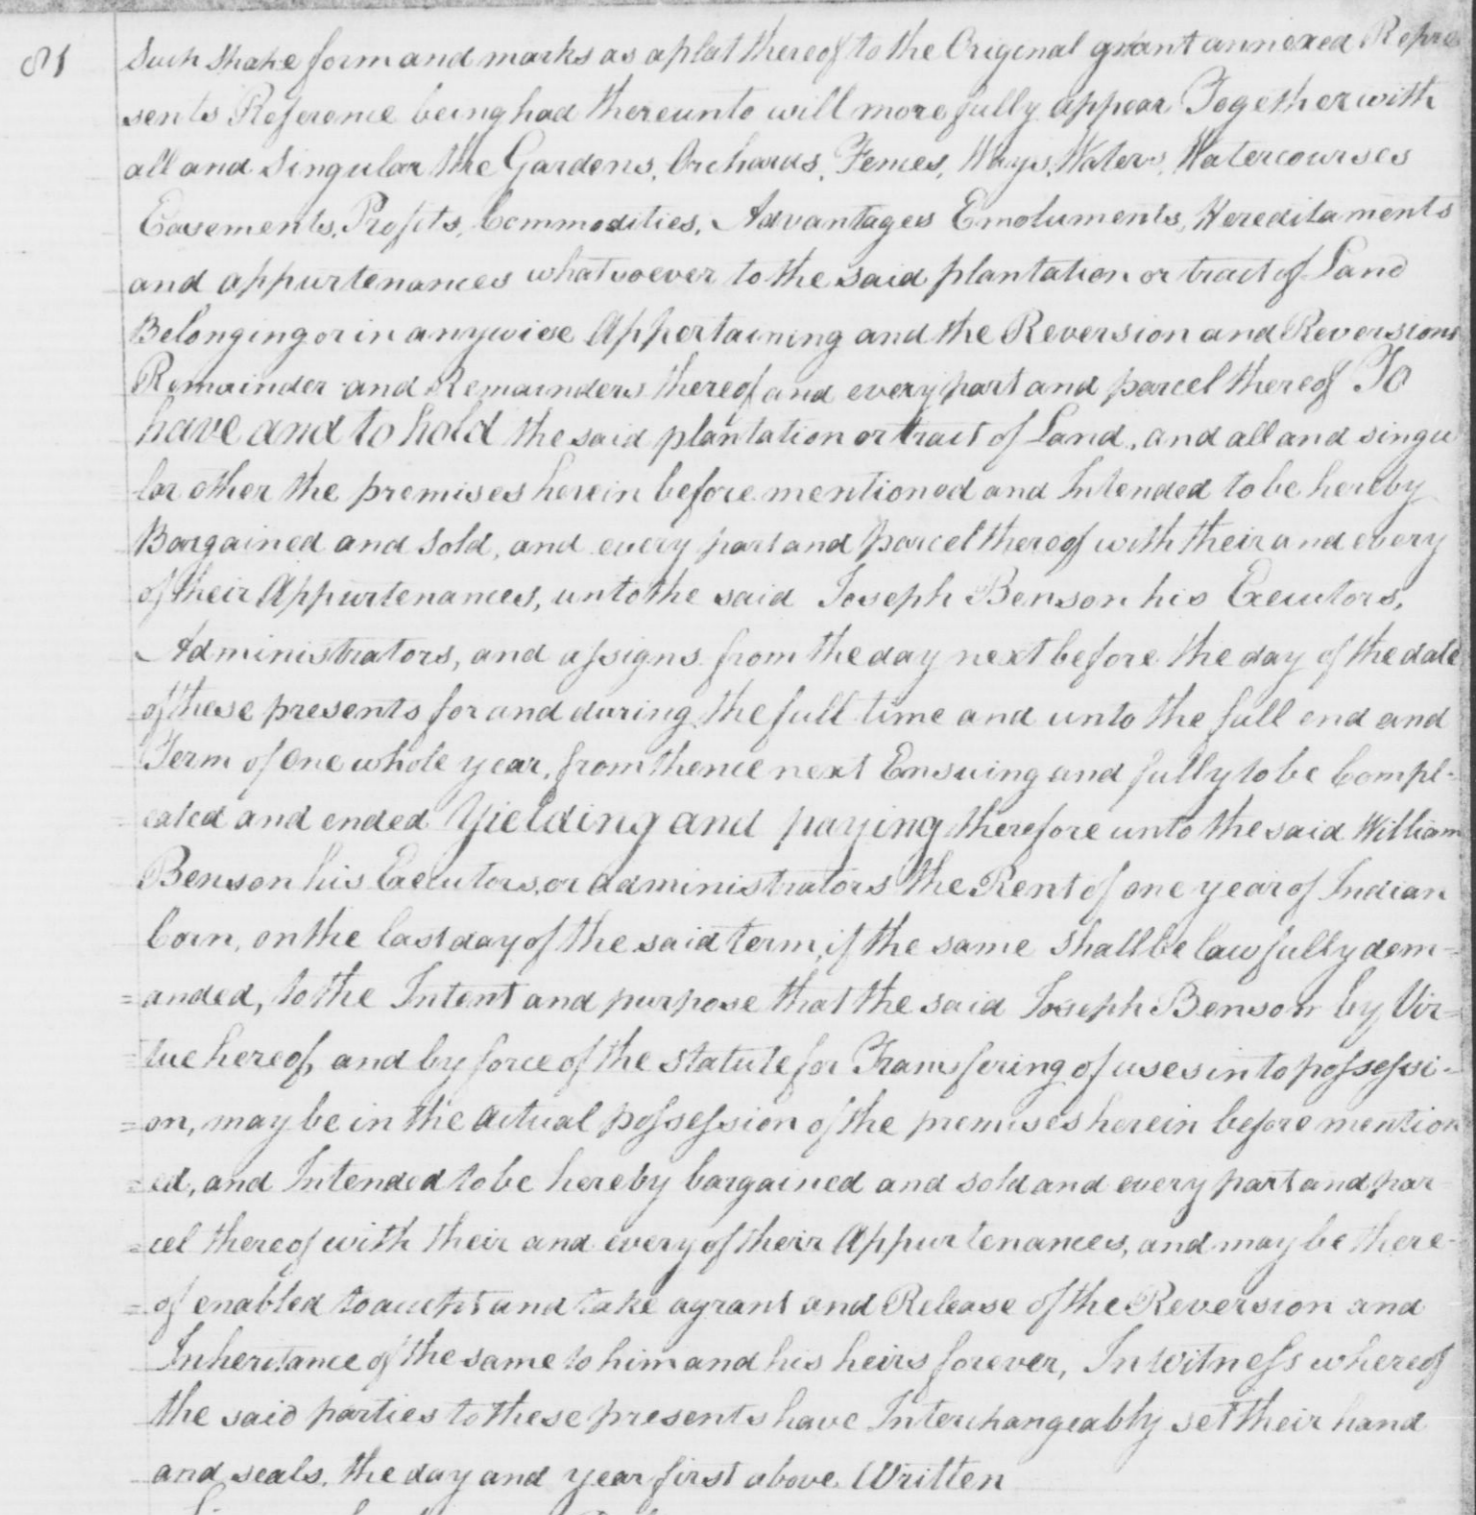 81
Such shape form and marks as a plat thereof to the Original grant annexed Repre
sents Reference being had thereunto will more fully appear Together with
all and Singular the Gardens, Orchards, Fences, Ways, Waters, Watercourses
Easements, Profits, Commodities, Advantages Emoluments, Hereditaments
and appurtenances whatsoever to the said plantation or tract of Land
Belonging or in anywise Appertaining and the Reversion and Reversions
Remainder and Remainders thereof and every part and parcel thereof To
have and to hold the said plantation or tract of Land, and all and singu
lar other the premises herein before mentioned and Intended to be hereby
Bargained and Sold, and every part and Parcel thereof with their and every
of their Appurtenances, unto the said Joseph Benson his Executors,
Administrators, and assigns from the day next before the day of the date
=of these presents for and during the full time and unto the full end and
Term of One whole year, from thence next Ensuing and fully to be Compl-
=eated and ended Yielding and paying therefore unto the said William
Benson his Executors, or administrators the Rent of one year of Indian
Corn, on the last day of the said term, if the same shall be lawfully dem=
=anded, to the Intent and purpose that the said Joseph Benson by Vir=
=tue hereof, and by force of the Statute for Transfering of uses into possessi-
=on, may be in the actual possession of the premises herein before mention
=ed, and Intended to be hereby bargained and sold and every part and par
=cel thereof with their and every of their Appurtenances, and may be there-
=of enabled to accept and take a grant and Release of the Reversion and
Inheritance of the same to him and his heirs forever, In Witness whereof
the said parties to these presents have Interchangeably set their hand
and seals, the day and year first above Written